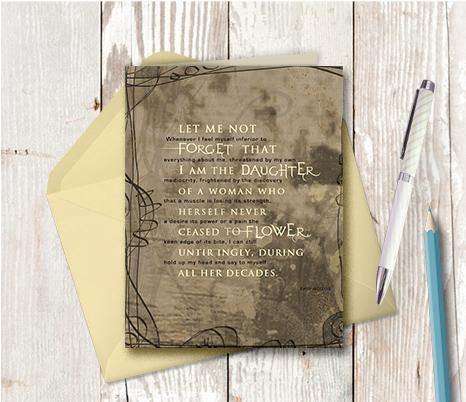 LET ME NOT
Whenever I feel myself inferior to
FORGET THAT
everything about me, threatened by my own
I AM THE DAUGHTER
mediocrity, frightened by the discovery
OF A WOMAN WHO
that a muscle is losing its strength,
HERSELF NEVER
a desire its power or a pain the
CEASED TO FLOWER
keen edge of its bite, I can still
UNTIRINGLY, DURING
hold up my head and say to myself
ALL HER DECADES.